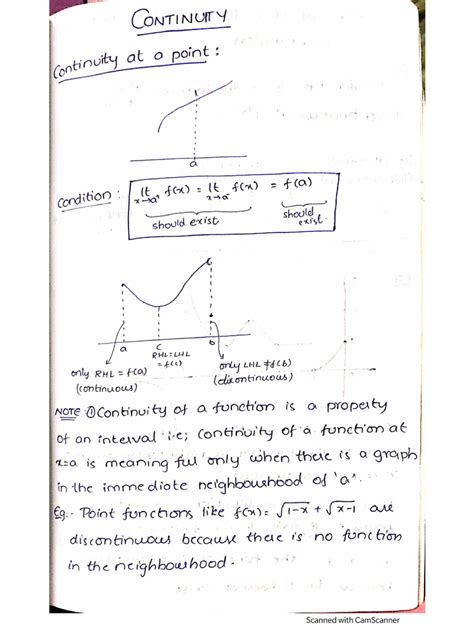 CONTINUITY
Continuity at a point :
a
Condition : lt x→a⁺ f(x) = lt x→a⁻ f(x) = f(a)
should exist should exist.
a c b
RHL=LHL
= f(c)
only RHL = f(a)
(continuous)
only LHL ≠ f(b)
(discontinuous)
NOTE ① Continuity of a function is a property
of an interval i.e; continuity of a function at
x=a is meaning ful only when there is a graph
in the immediate neighbourhood of 'a'.
Eg:- Point functions like f(x)= √1-x + √x-1 are
discontinuous because there is no function
in the neighbourhood.
Scanned with CamScanner